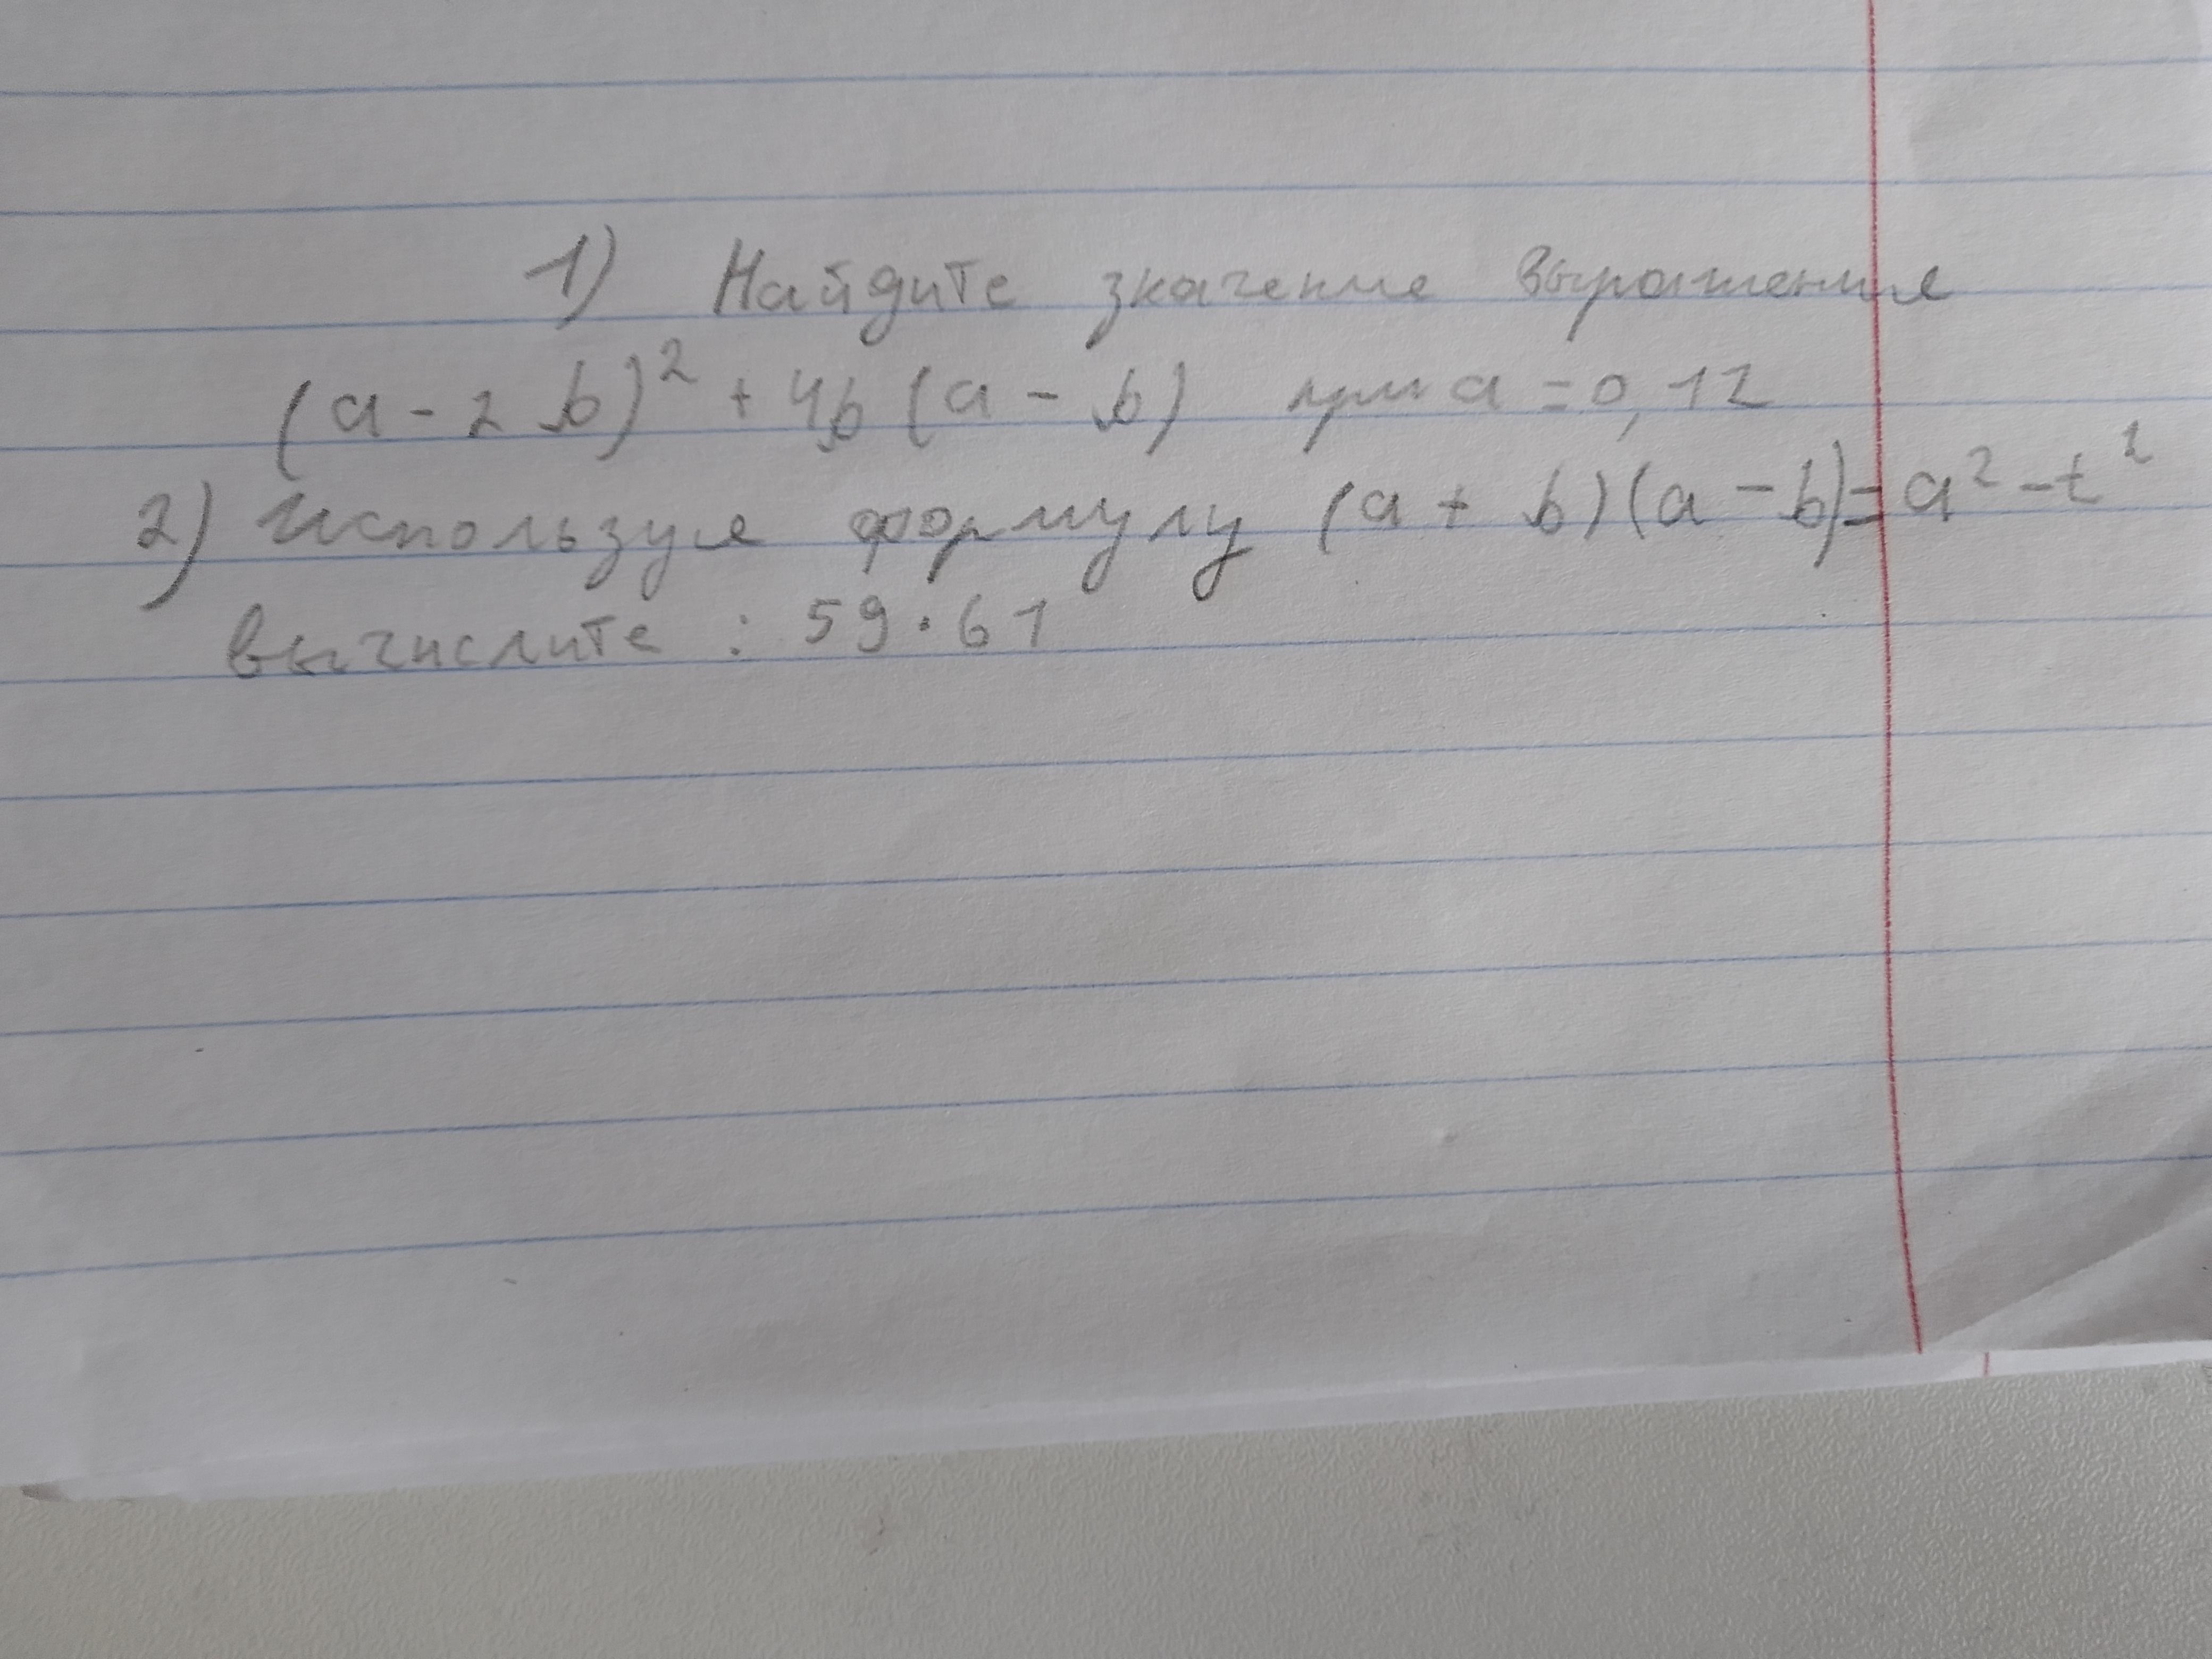 1) Найдите значение выражения
(a - 2b)² + 4b (a - b) при a = 0,12
2) Используя формулу (a + b)(a - b) = a² - t²
вычислите : 59 · 61